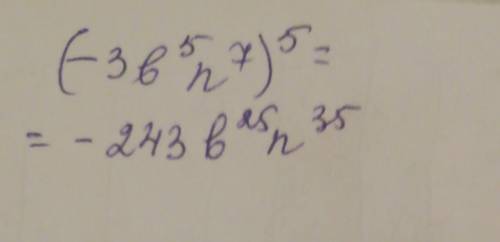 (-3b⁵n⁷)⁵ =
= -243b²⁵n³⁵